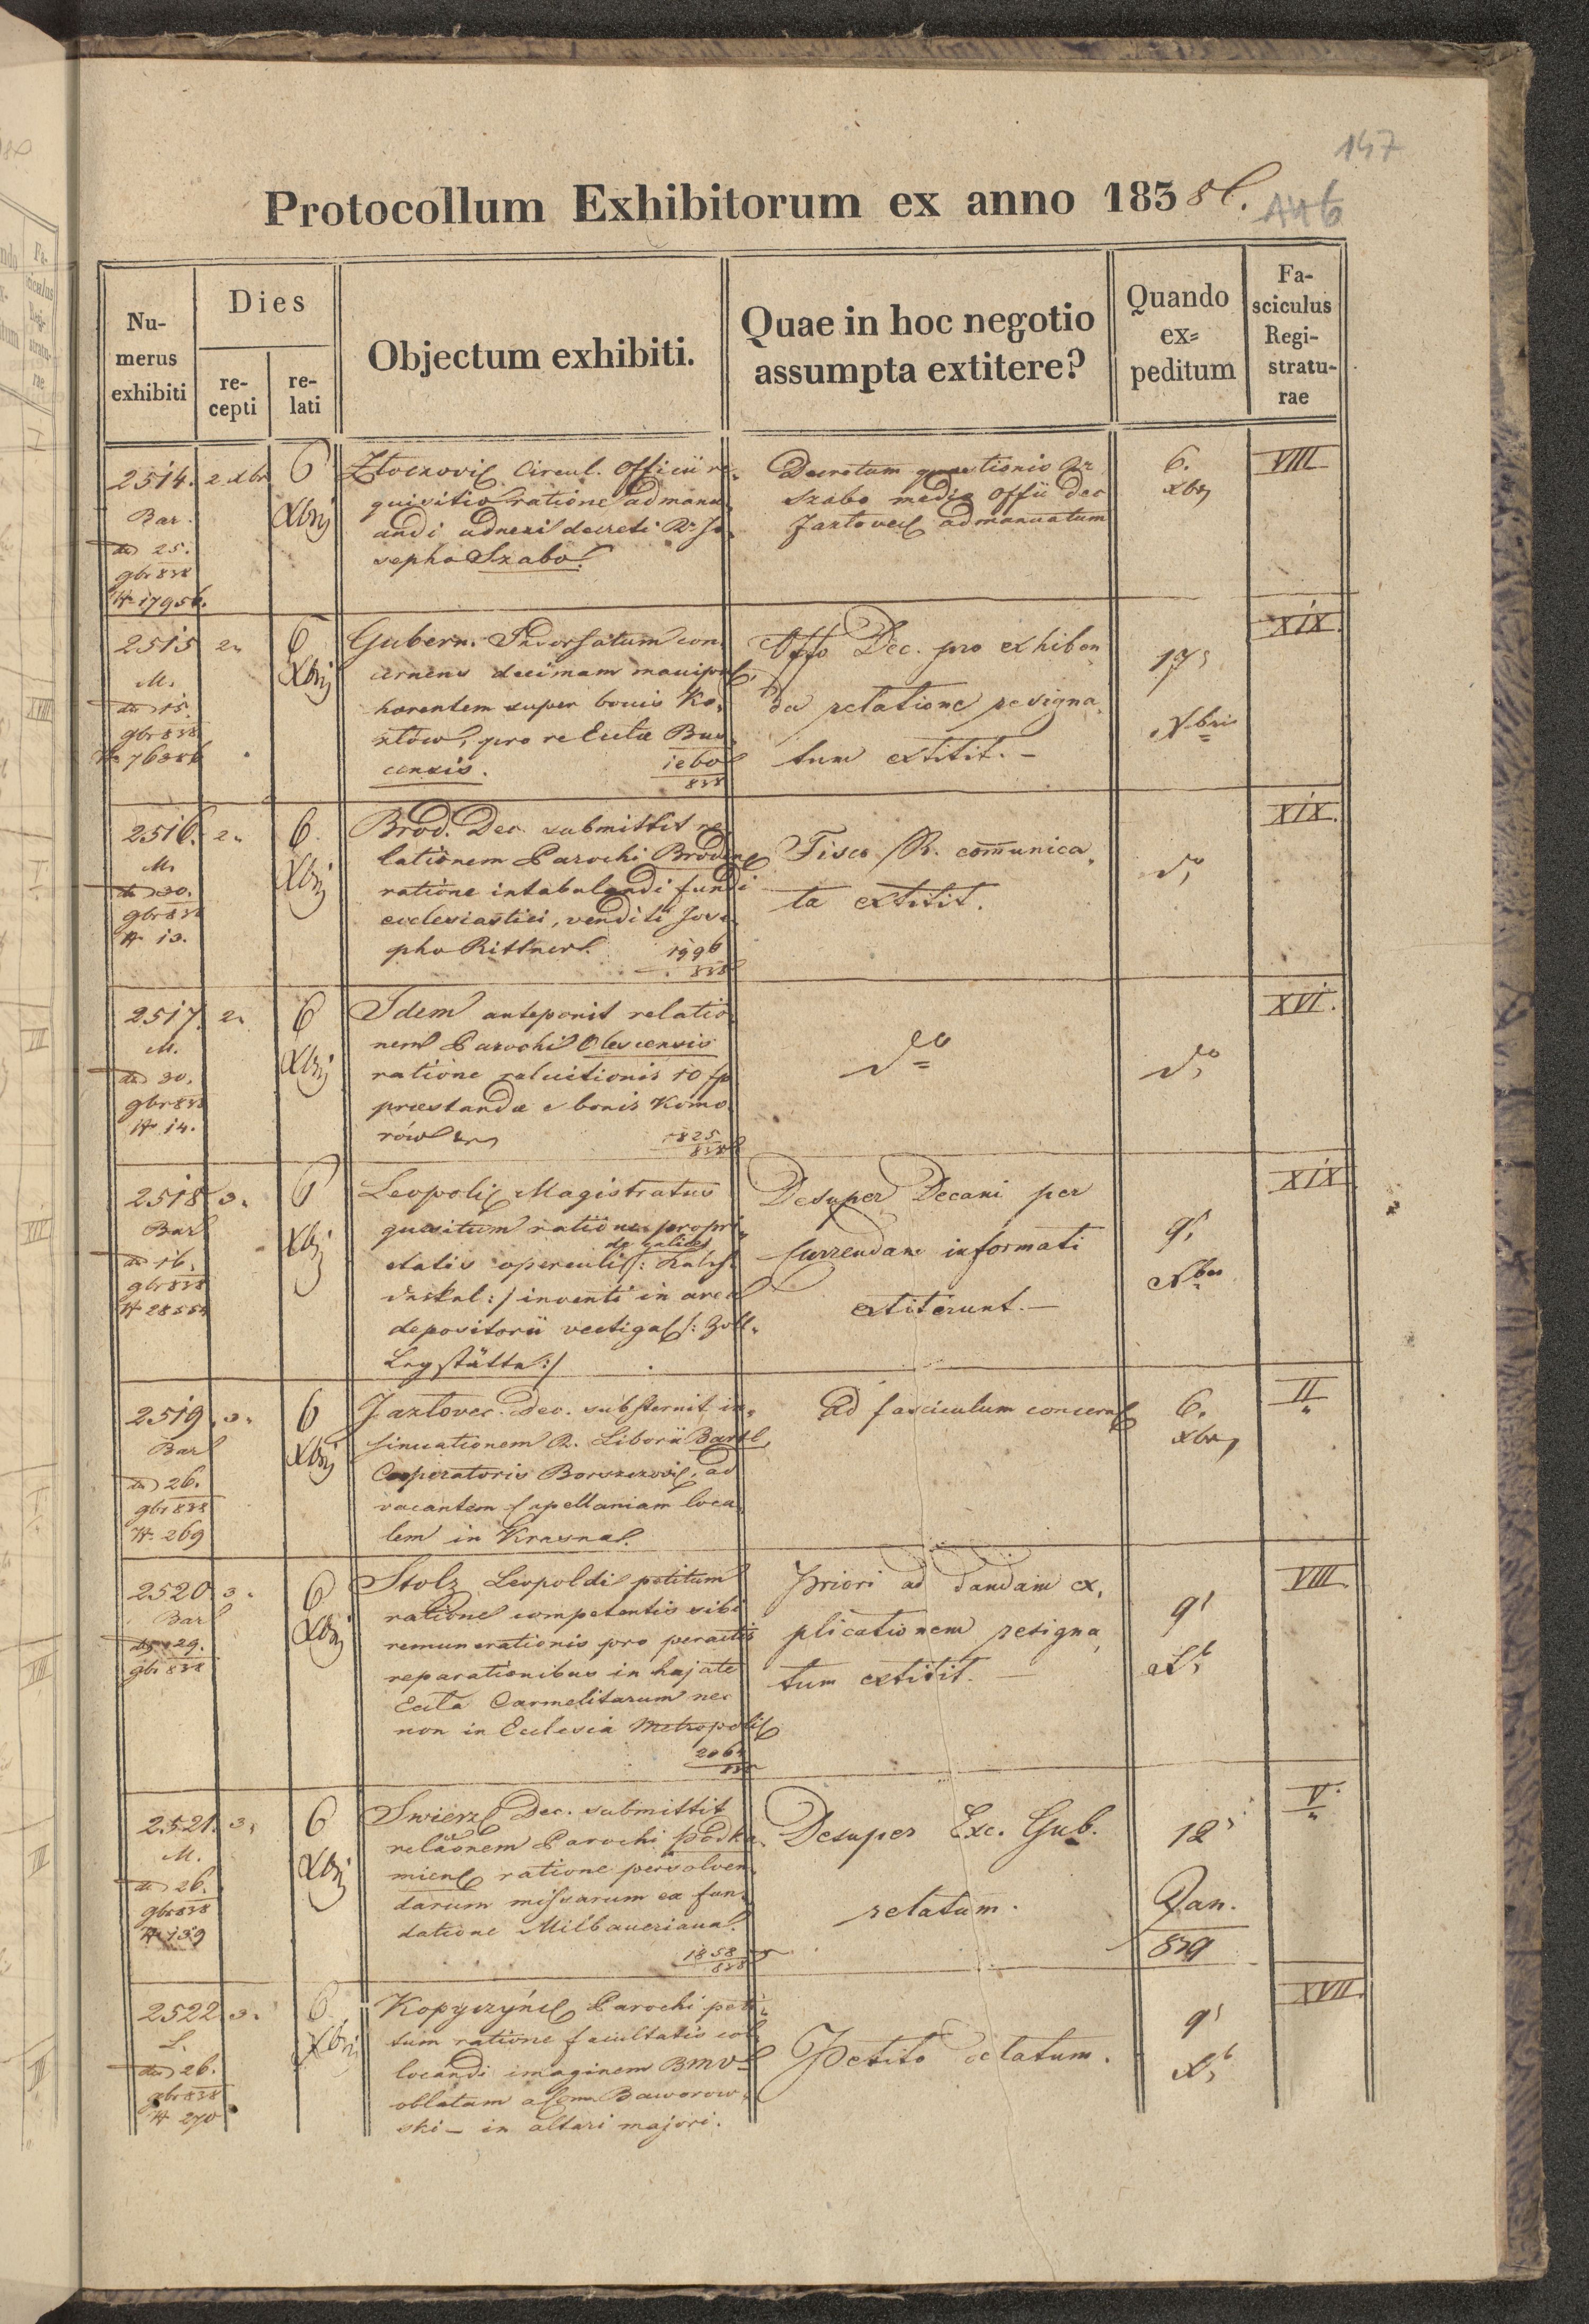 147
Protocollum Exhibitorum ex anno 1838.
146
Numerus exhibiti
Dies
recepti
relati
Objectum exhibiti.
Quae in hoc negotio
assumpta extitere?
Quando
ex=
peditum
Fa-
sciculus
Regi-
stratu-
rae
2514. 2 xbr 6 Xbrij
Bar.
25.
9br 838
N 17956.
Officii re-
quisitio ratione admanu-
andi adnexi decreti R. Jo-
sepho Szabo.
Decretum
Szabo medio Offii Dec
admanuatum
6.
xbr
VIII
2515 2. 6 Xbrij
M.
15.
9br 838
Gubern. con-
cernens decimam manipul
haerentem super bonis Ko-
złów, pro re Ecclae Buc-
censis.
838
Offo Dec. pro exhiben-
da relatione resigna-
tum extitit. –
17
Xbris
XIX.
2516. 2. 6. Xbrij
M.
30.
9br 838
N 13.
Brod. Dec. submittit re-
lationem Parochi Brodens
ratione intabulandi fundi
ecclesiastici, venditi Jose-
pho Rittner.
1996
838
Fisco R. comunica-
ta extitit.
do
XIX.
2517. 2. 6 Xbrij
M.
30.
9br 838
N 14.
Idem anteponit relatio-
nem Parochi Olescensis
ratione reluitionis 10 fp
praestandae e bonis Komo-
rów
1825
838
do
do
XVI.
2518 3. 6 Xbrij
Bar
16.
9br 838
N 2855
Leopoli Magistratus
quaesitum ratione propri-
etatis operculi
de calice
:/ inventi in area
depositorii vectigal /: Zoll-
Legstätte :/
Desuper Decani per
Currendam informati
extiterunt. –
9
Xbr
XIX
2519. 3. 6 Xbrij
Bar
26.
9br 838
N 269
Jazlovec. Dec. substernit in-
sinuationem R. Liborii
Cooperatoris ad
vacantem Capellaniam loca-
lem in Krasna.
Ad fasciculum concern
6.
xbr
II
2520 3. 6 Xbrij
Bar
29.
9br 838
Stolz Leopoldi petitum
ratione competentis sibi
remunerationis pro peractis
reparationibus in hujate
Eccla Carmelitarum nec
non in Ecclesia Metropoli
Priori ad dandam ex-
plicationem resigna-
tum extitit. –
9
Xb
VIII.
2521. 3. 6 Xbrij
M.
26.
9br 838
N 139
Swierz Dec. submittit
relaonem Parochi Podka-
mien ratione persolven-
darum missarum ex fun-
datione Milbaueriana.
1858
838
Desuper Exc. Gub.
relatum.
12
Jan.
839
V.
2522 3. 6. Xbrij
L.
26.
9br 838
N 270
Kopyczyń Parochi peti-
tum ratione facultatis col-
locandi imaginem BMV
oblatam a Com. Baworow-
ski – in altari majori.
Petito delatum.
9
Xb
XVII.